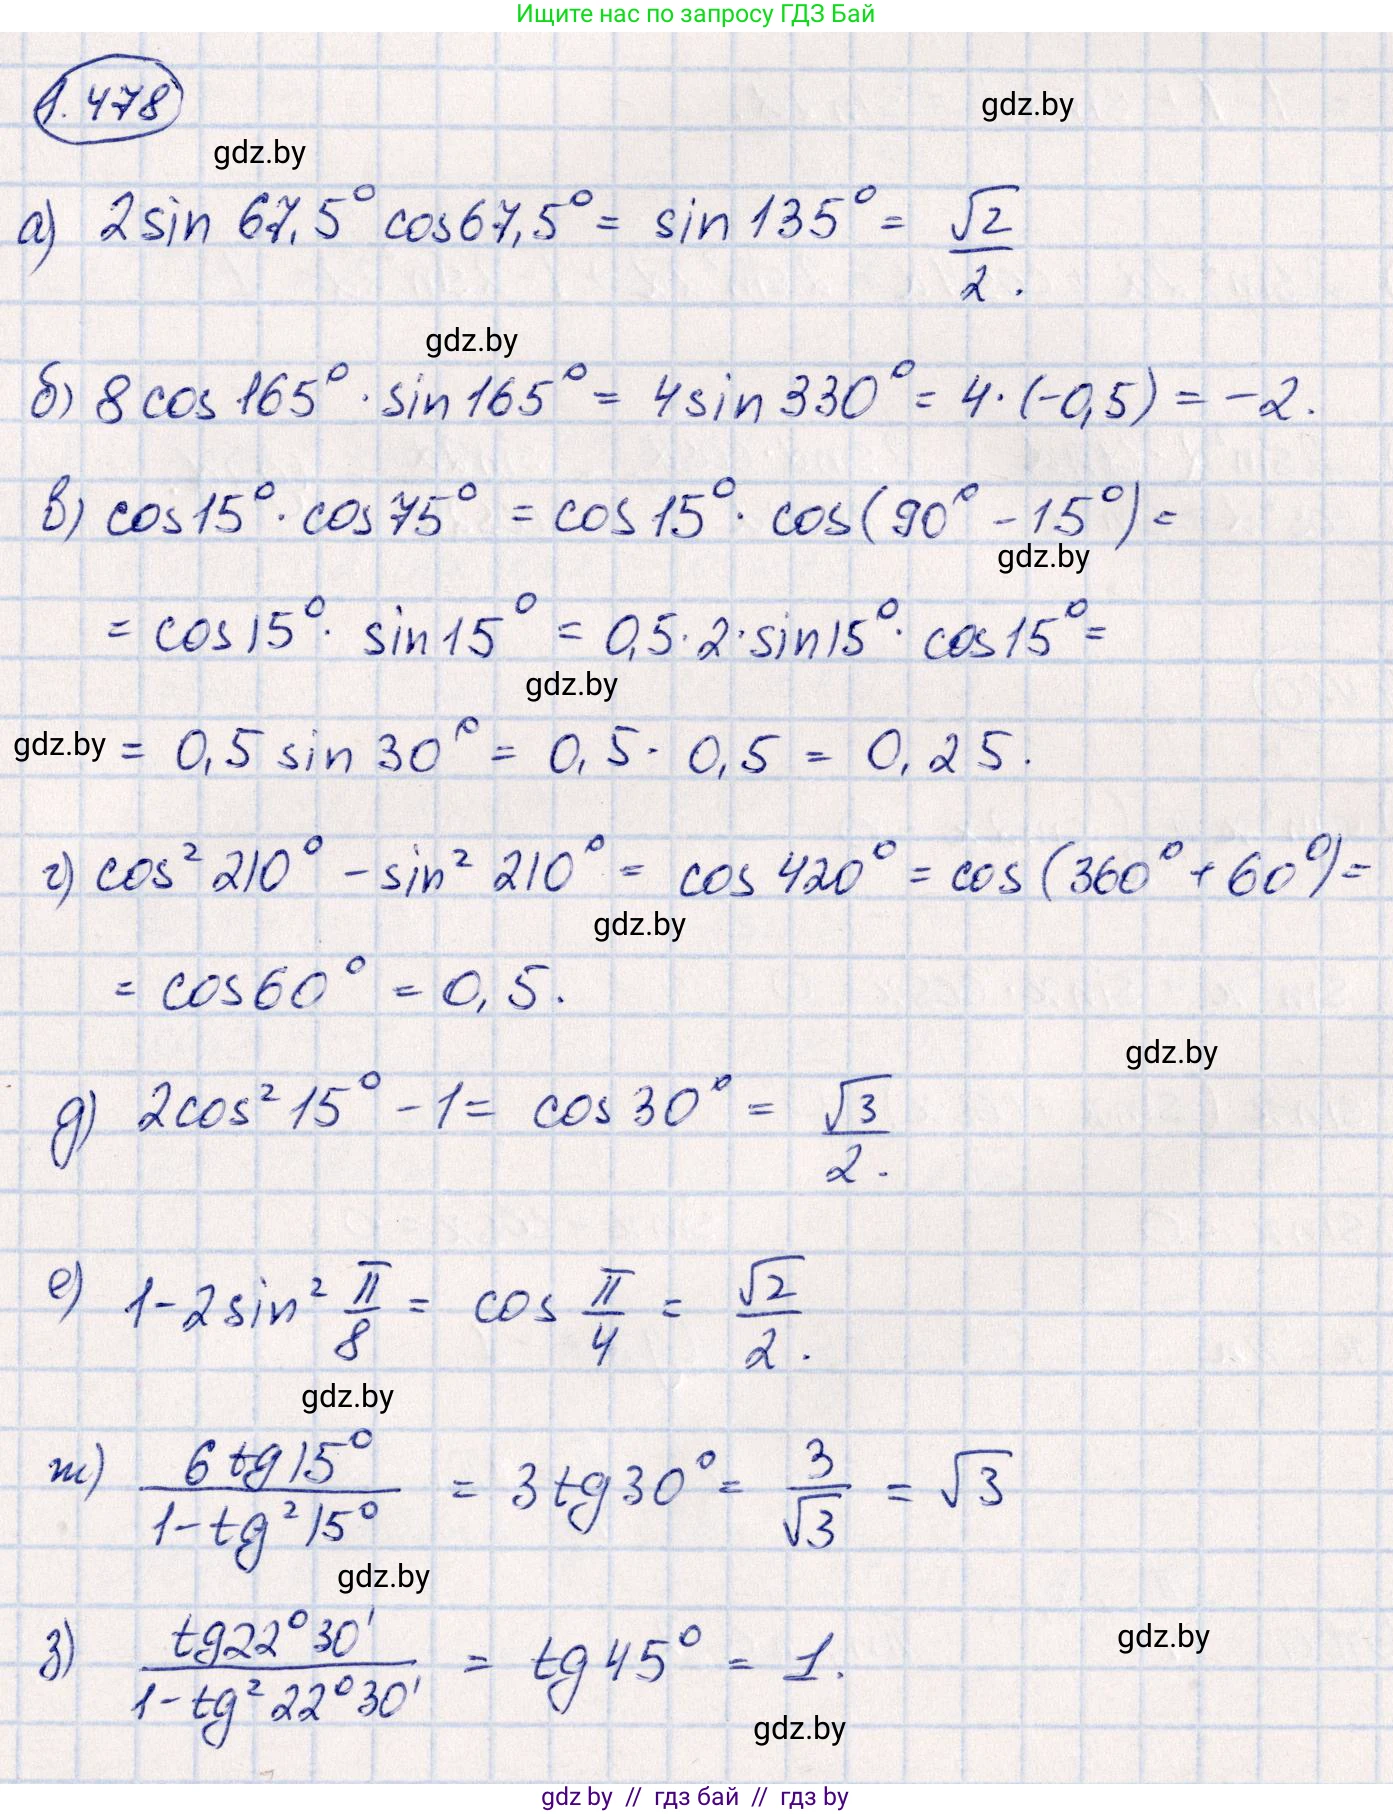 Ищите нас по запросу ГДЗ Бай
1.478
gdz.by
gdz.by
а) 2sin 67,5° cos67,5° = sin 135° = √2/2.
gdz.by
б) 8cos 165° · sin 165° = 4sin 330° = 4·(-0,5) = -2.
в) cos15° · cos75° = cos15° · cos(90° - 15°) =
gdz.by
= cos15° · sin15° = 0,5·2·sin15° · cos15° =
gdz.by
gdz.by
= 0,5 sin 30° = 0,5 · 0,5 = 0,25.
г) cos² 210° - sin² 210° = cos 420° = cos(360° + 60°) =
gdz.by
= cos60° = 0,5.
gdz.by
д) 2cos² 15° - 1 = cos 30° = √3/2.
е) 1-2sin² π/8 = cos π/4 = √2/2.
gdz.by
ж) 6tg15°/1-tg²15° = 3tg30° = 3/√3 = √3
gdz.by
з) tg22°30'/1-tg²22°30' = tg45° = 1.
gdz.by
gdz.by
gdz by // гдз бай // гдз by